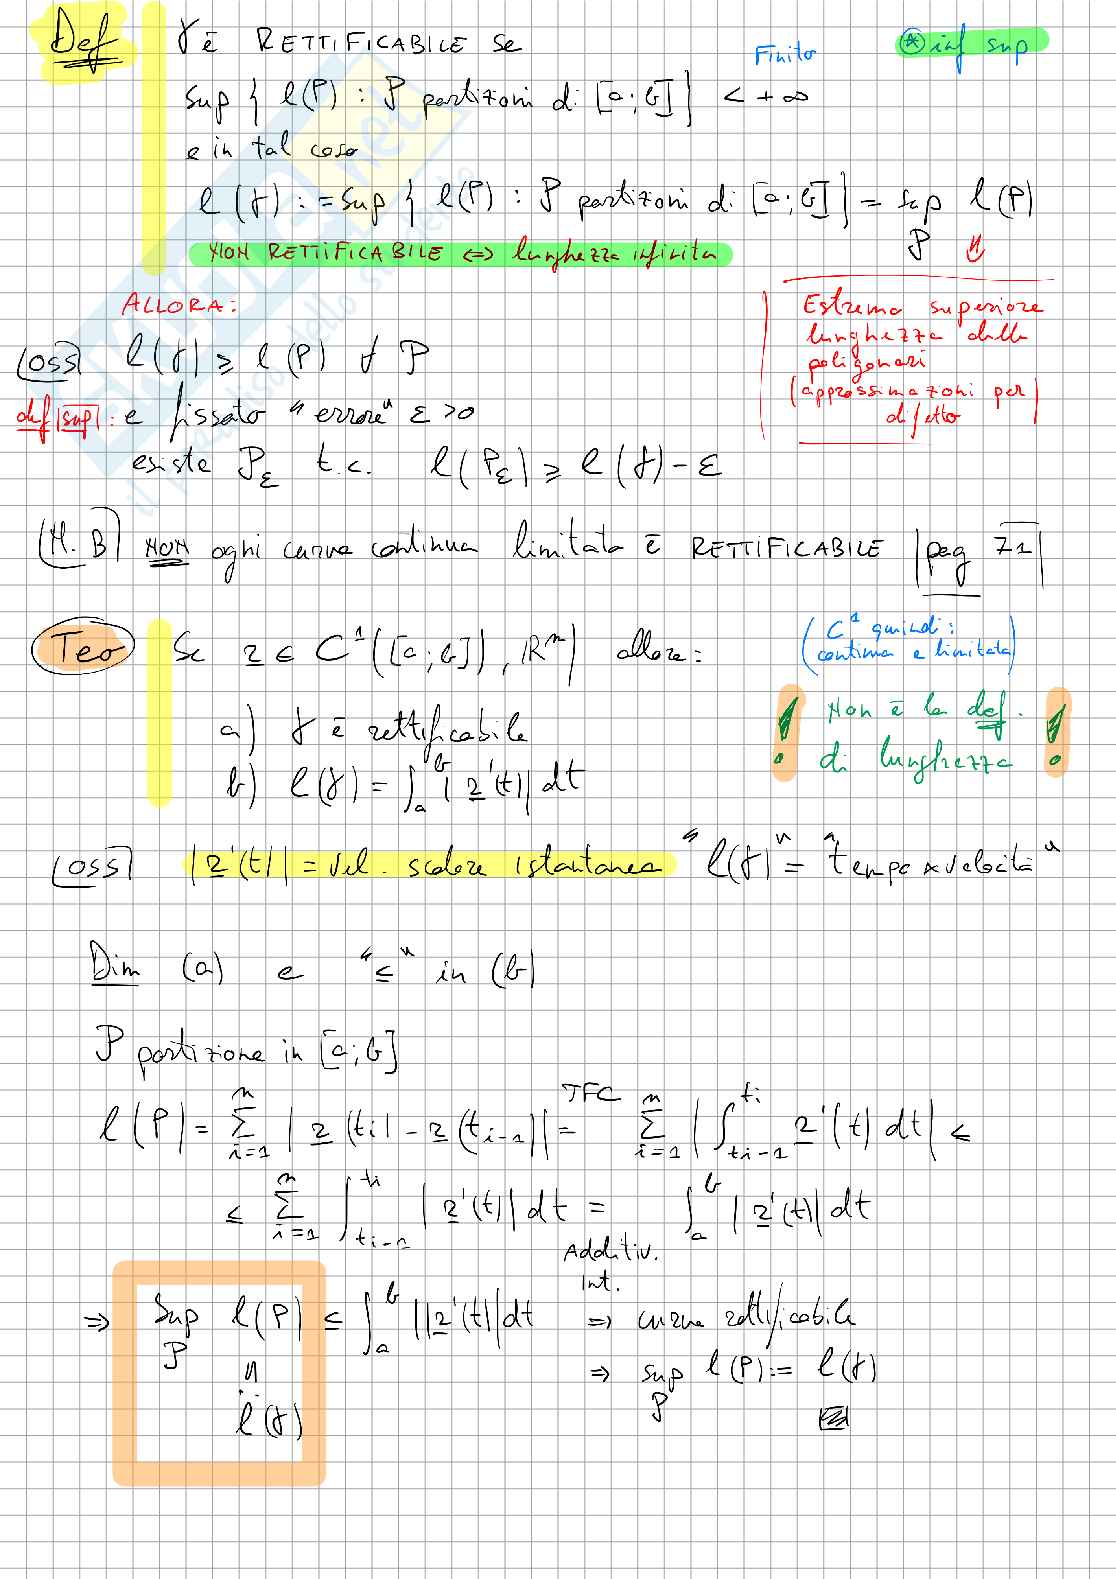 Def γ è RETTIFICABILE se
⊛ inf sup
Finito
sup { l(P) : P partizioni di [a;b] } < +∞
e in tal caso
l(γ) := sup { l(P) : P partizioni di [a;b] } = sup l(P)
P
NON RETTIFICABILE ⇔ lunghezza infinita
ALLORA:
Estremo superiore
lunghezza delle
poligonari
(approssimazioni per
difetto
OSS l(γ) ≥ l(P) ∀ P
def |sup|: e fissato "errore" ε>0
esiste Pε t.c. l(Pε) ≥ l(γ) - ε
N.B NON ogni curva continua limitata è RETTIFICABILE |pag 71|
Teo Se r ∈ C¹([a;b]), ℝᵐ) allora:
(C¹ quindi:
continua e limitata)
a) γ è rettificabile
! Non è la def. !
di lunghezza
b) l(γ) = ∫ₐᵇ |r'(t)| dt
OSS |r'(t)| = vel. scalare istantanea "l(γ)" = "tempo × velocità"
Dim (a) e "≤" in (b)
P partizione in [a;b]
l(P) = Σᵢ₌₁ⁿ |r(tᵢ) - r(tᵢ₋₁)| = TFC Σᵢ₌₁ⁿ |∫ₜᵢ₋₁ᵗⁱ r'(t) dt| ≤
≤ Σᵢ₌₁ⁿ ∫ₜᵢ₋₁ᵗⁱ |r'(t)| dt = ∫ₐᵇ |r'(t)| dt
Additiv.
Int.
⇒ sup l(P) ≤ ∫ₐᵇ ||r'(t)| dt ⇒ curva rettificabile
P
⇒ sup l(P) := l(γ)
P
l(γ)